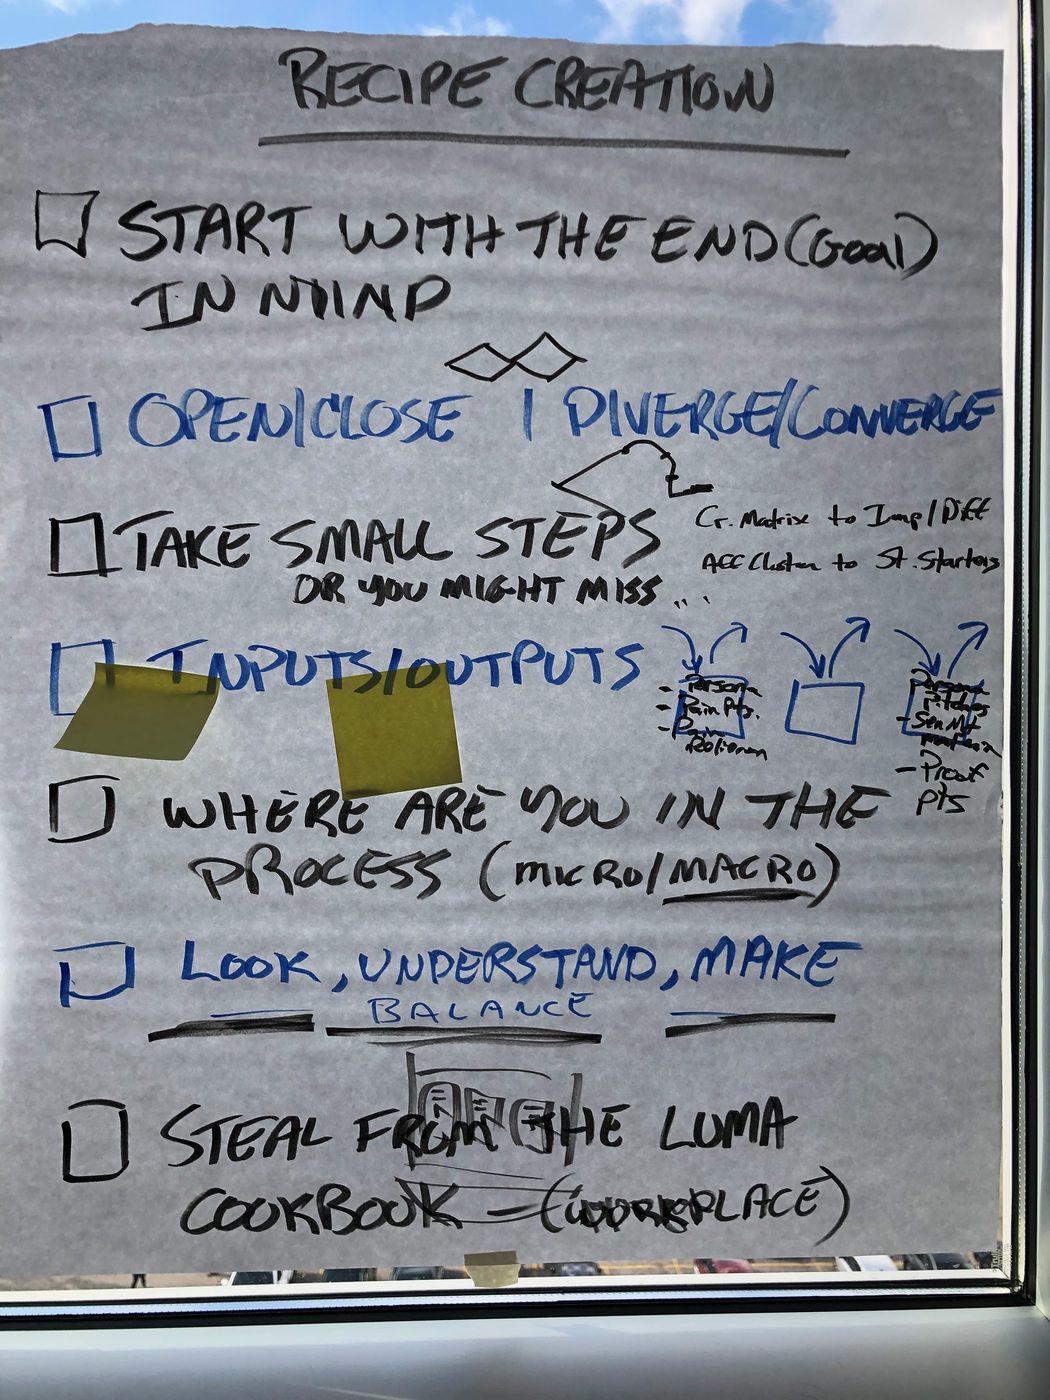 RECIPE CREATION
START WITH THE END (Goal)
IN MIND
OPEN/CLOSE | DIVERGE/CONVERGE
TAKE SMALL STEPS
OR YOU MIGHT MISS...
Cr. Matrix to Imp/Diff
Aff Cluster to St. Starters
INPUTS/OUTPUTS
- Persona
- Pain Pts.
- Pain
Persona
Pitches
- Proof
pts
WHERE ARE YOU IN THE
PROCESS (MICRO/MACRO)
LOOK, UNDERSTAND, MAKE
BALANCE
STEAL FROM THE LUMA
COOKBOOK - (WORKPLACE)